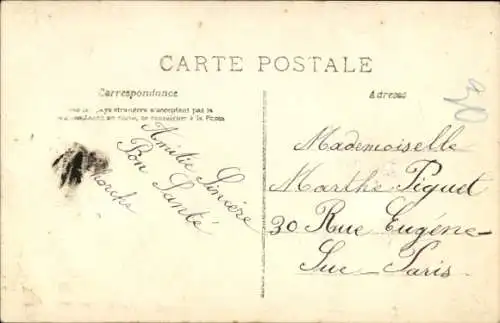 CARTE POSTALE
Correspondance
pays étrangers n'acceptent pas la
se renseigner à la Poste
Amitié Sincère
Bon Santé
Adresse
Mademoiselle
Marthe Piguet
30 Rue Eugène-
Sue - Paris -